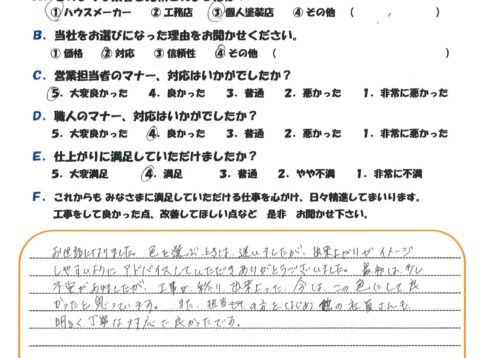 ①ハウスメーカー ②工務店 ③個人塗装店 ④その他 ( )
B. 当社をお選びになった理由をお聞かせください。
①価格 ②対応 ③信頼性 ④その他 ( )
C. 営業担当者のマナー、対応はいかがでしたか?
5. 大変良かった 4. 良かった 3. 普通 2. 悪かった 1. 非常に悪かった
D. 職人のマナー、対応はいかがでしたか?
5. 大変良かった 4. 良かった 3. 普通 2. 悪かった 1. 非常に悪かった
E. 仕上がりに満足していただけましたか?
5. 大変満足 4. 満足 3. 普通 2. やや不満 1. 非常に不満
F. これからも みなさまに満足していただける仕事を心がけ、日々精進してまいります。
工事をして良かった点、改善してほしい点など 是非 お聞かせ下さい。
お世話になりました。色を選ぶときは、迷いましたが、出来上がりがイメージ
しやすいように アドバイスしていただきありがとうございました。最初は、少し
不安がありましたが、工事が終り、出来上った今は、この色にして良
かったと思っています。また、担当の方をはじめ 他の社員さんも、
明るく丁寧な対応で良かったです。